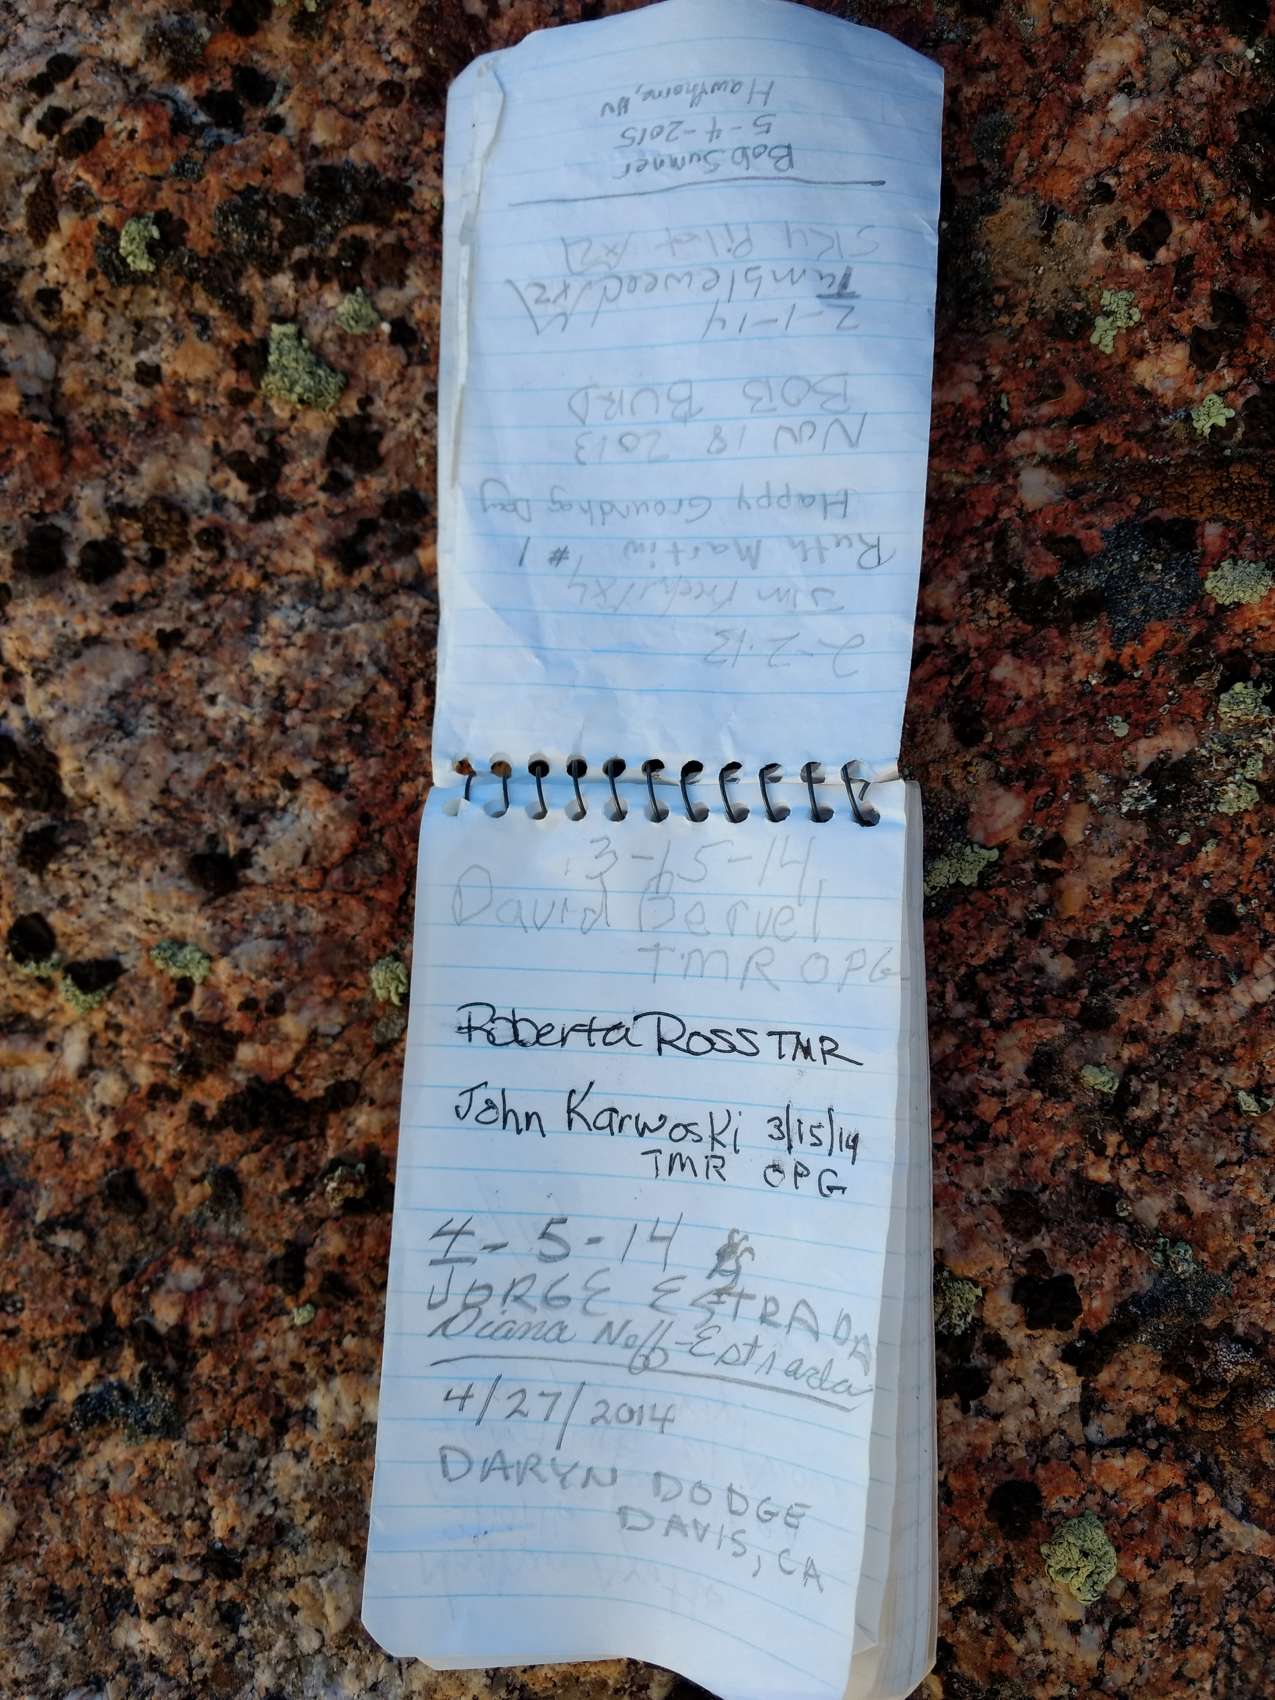 2-2-13
Jim
Ruth Martin #1
Happy Groundhog Day
Nov 18 2013
BOB BURD
2-1-14
Tumbleweed/x21
Sky Pilot/x21
Bob Sumner
5-4-2015
Hawthorne, NV
3-15-14
David
TMR OPG
Roberta Ross TMR
John Karwoski 3/15/14
TMR OPG
4-5-14
JORGE ESTRADA
Diana Neff-Estrada
4/27/2014
DARYN DODGE
DAVIS, CA